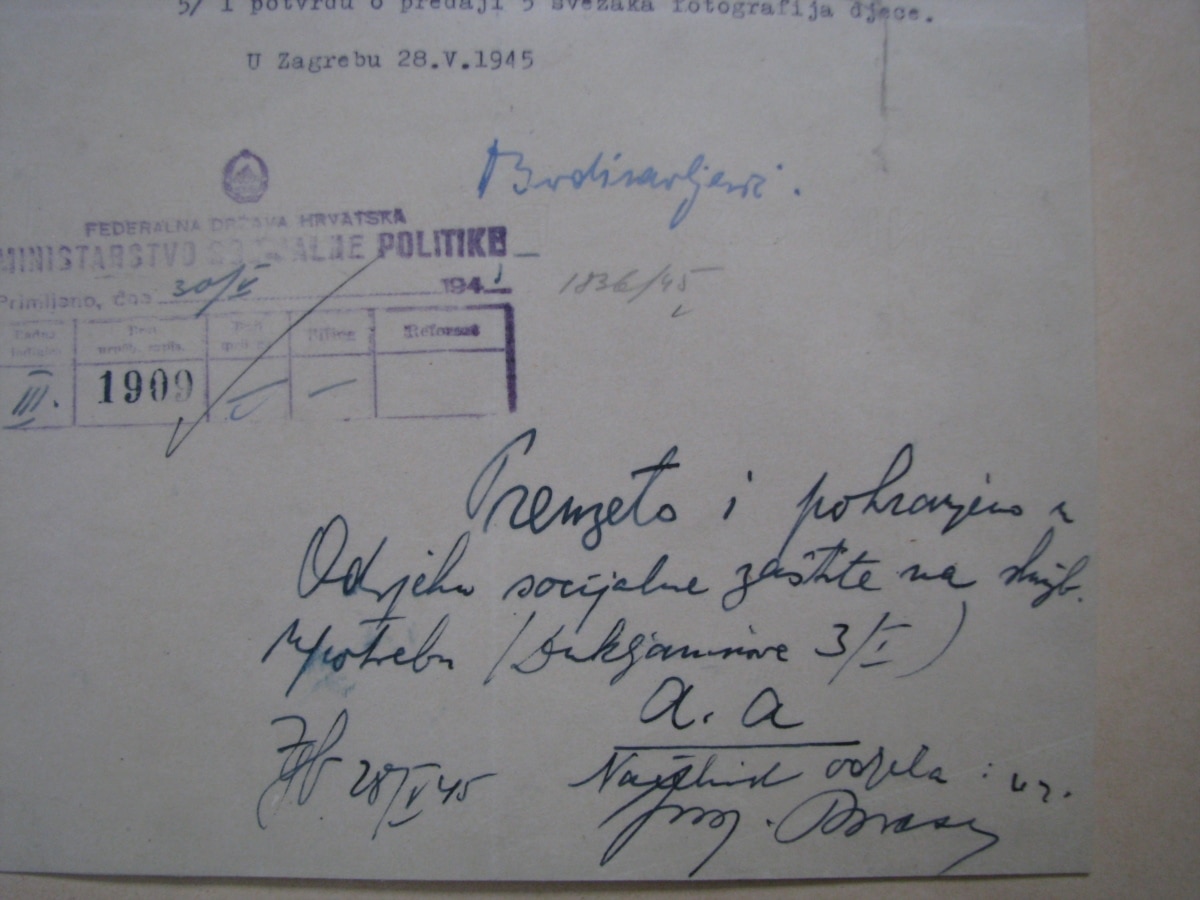 5/ 1 potvrdu o predaji 5 svezaka fotografija djece.
U Zagrebu 28.V.1945
Budisavljević.
FEDERALNA DRŽAVA HRVATSKA
MINISTARSTVO SOCIJALNE POLITIKE
Primljeno, dne 30/V 1945
1836/45
Prilog Referent
III. 1909 — —
Preuzeto i pohranjeno u
Odjelu socijalne zaštite na služb.
upotrebu (Dukljaninova 3/I)
a. a
Zgb 28/V 45 Načelnik odjela : uz.